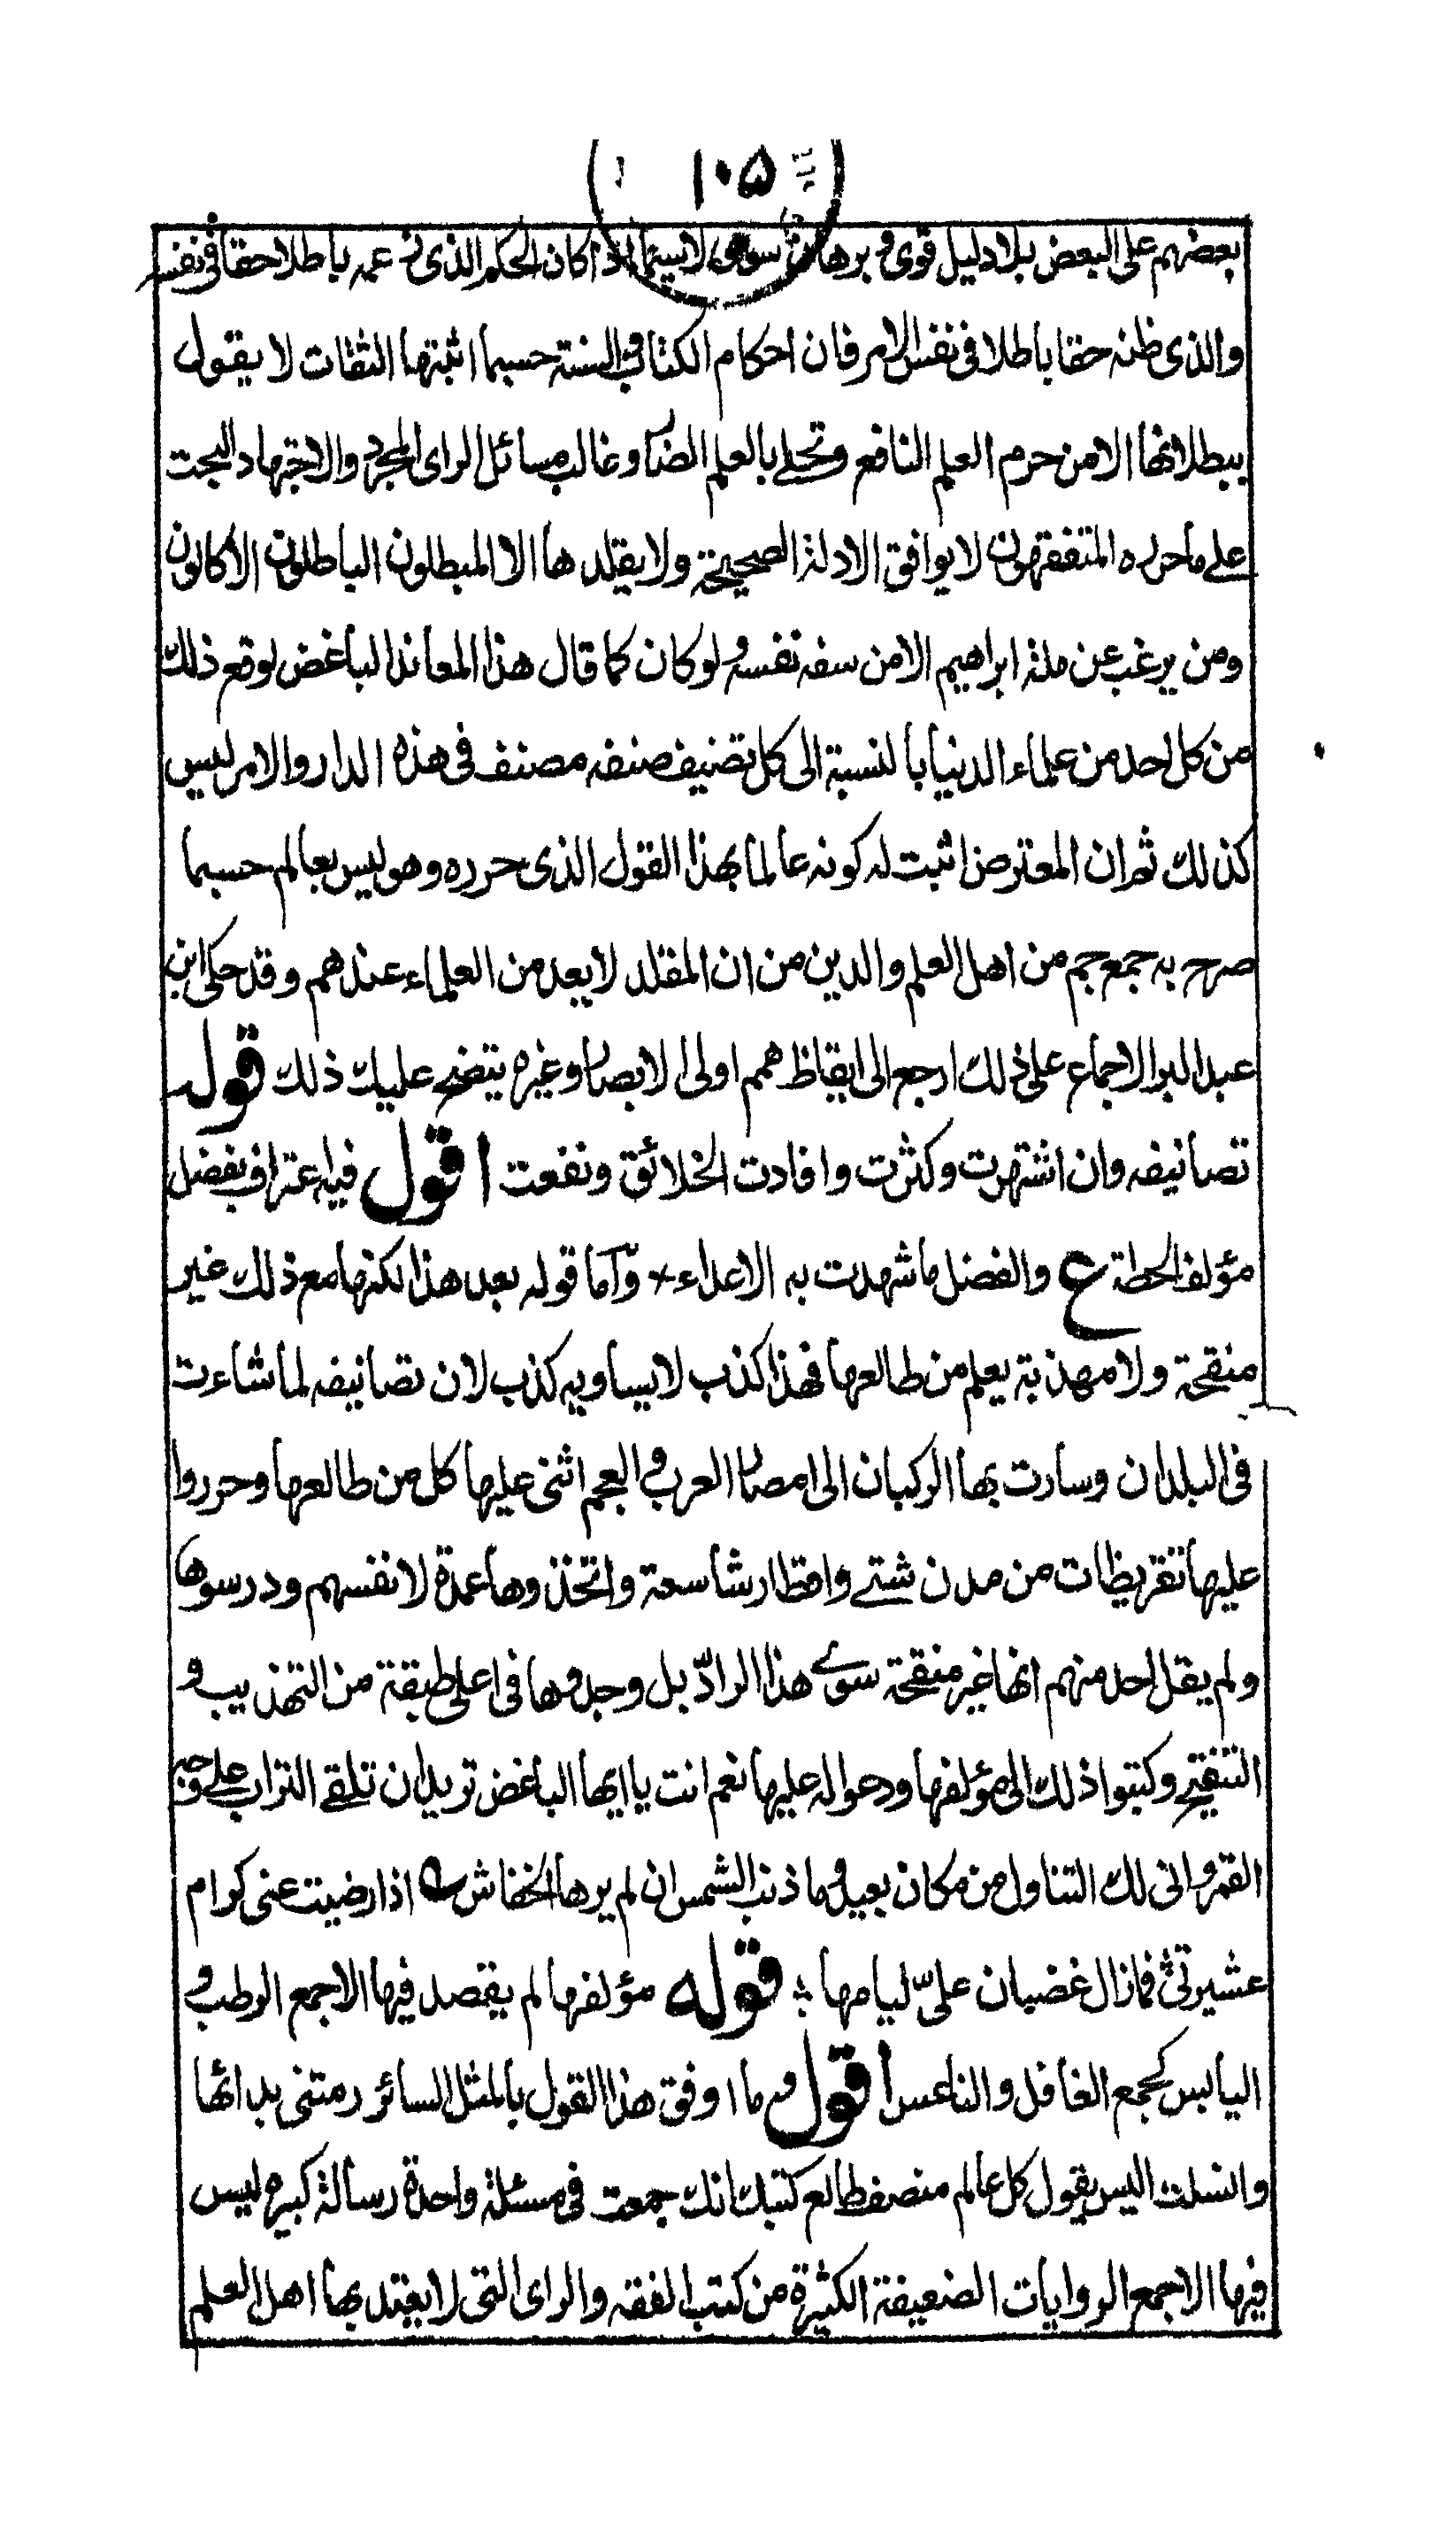 ١٠٥
بعضهم على البعض بلا دليل قوى و برهان سوى لاسيما اذا كان الحكم الذى زعمه باطلا حقا فى نفسه
والذى ظنه حقا باطلا فى نفس الامر فان احكام الكتاب والسنة حسبما اثبتها الثقات لا يقول
ببطلانها الا من حرم العلم النافع وتحلے بالعلم الضار وغالب مسائل الراى المجرد والاجتهاد البحت
علے ما حرره المتفقهون لا يوافق الادلة الصحيحة ولا يقلدها الا المبطلون الباطلون الاكالون
ومن يرغب عن ملة ابراهيم الا من سفه نفسه ولو كان كما قال هذا المعاند الباغض لوقع ذلك
من كل احد من علماء الدنيا بالنسبة الى كل تصنيف صنفه مصنف فى هذه الدار والامر ليس
كذلك ثم ان المعترض اثبت له كونه عالما بهذا القول الذى حرره وهو ليس بعالم حسبما
صرح به جمع جم من اهل العلم والدين من ان المقلد لا يعد من العلماء عندهم وقد حكى ابن
عبد البر الاجماع على ذلك ارجع الى ايقاظ همم اولى الابصار وغيره يتضح عليك ذلك قوله
تصانيفه وان اشتهرت وكثرت وافادت الخلائق ونفعت اقول فيه اعتراف بفضل
مؤلف الحطة ع والفضل ما شهدت به الاعداء × وّاما قوله بعد هذا لكنها مع ذلك غير
منقحة ولا مهذبة يعلم من طالعها فهذا كذب لا يساويه كذب لان تصانيفه لما شاءت
فى البلدان وسارت بها الركبان الى امصار العرب والعجم اثنى عليها كل من طالعها وحرروا
عليها تقريظات من مدن شتے واقطار شاسعة واتخذوها عمدة لانفسهم ودرسوها
ولم يقل احد منهم انها غير منقحة سوے هذا الرادّ بل وجدوها فى اعلى طبقة من التهذيب و
التنقيح وكتبوا ذلك الى مؤلفها ودعوا له عليها نعم انت يا ايها الباغض تريد ان تلقے التراب علے وجه
القمر وانى لك التناول من مكان بعيد وما ذنب الشمس ان لم يرها الخفاش ؎ اذا رضيت عنى كرام
عشيرتى ؛ فما زال غضبان علىّ ليامها ؛ قوله مؤلفها لم يقصد فيها الا جمع الرطب و
اليابس كجمع الغافل والناعس اقول وما اوفق هذا القول بالمثل السائر رمتنى بدائها
وانسلت اليس يقول كل عالم منصف طالع كتبك انك جمعت فى مسئلة واحدة رسالة كبيرة ليس
فيها الا جمع الروايات الضعيفة الكثيرة من كتب الفقه والراى التى لا يعتد بها اهل العلم